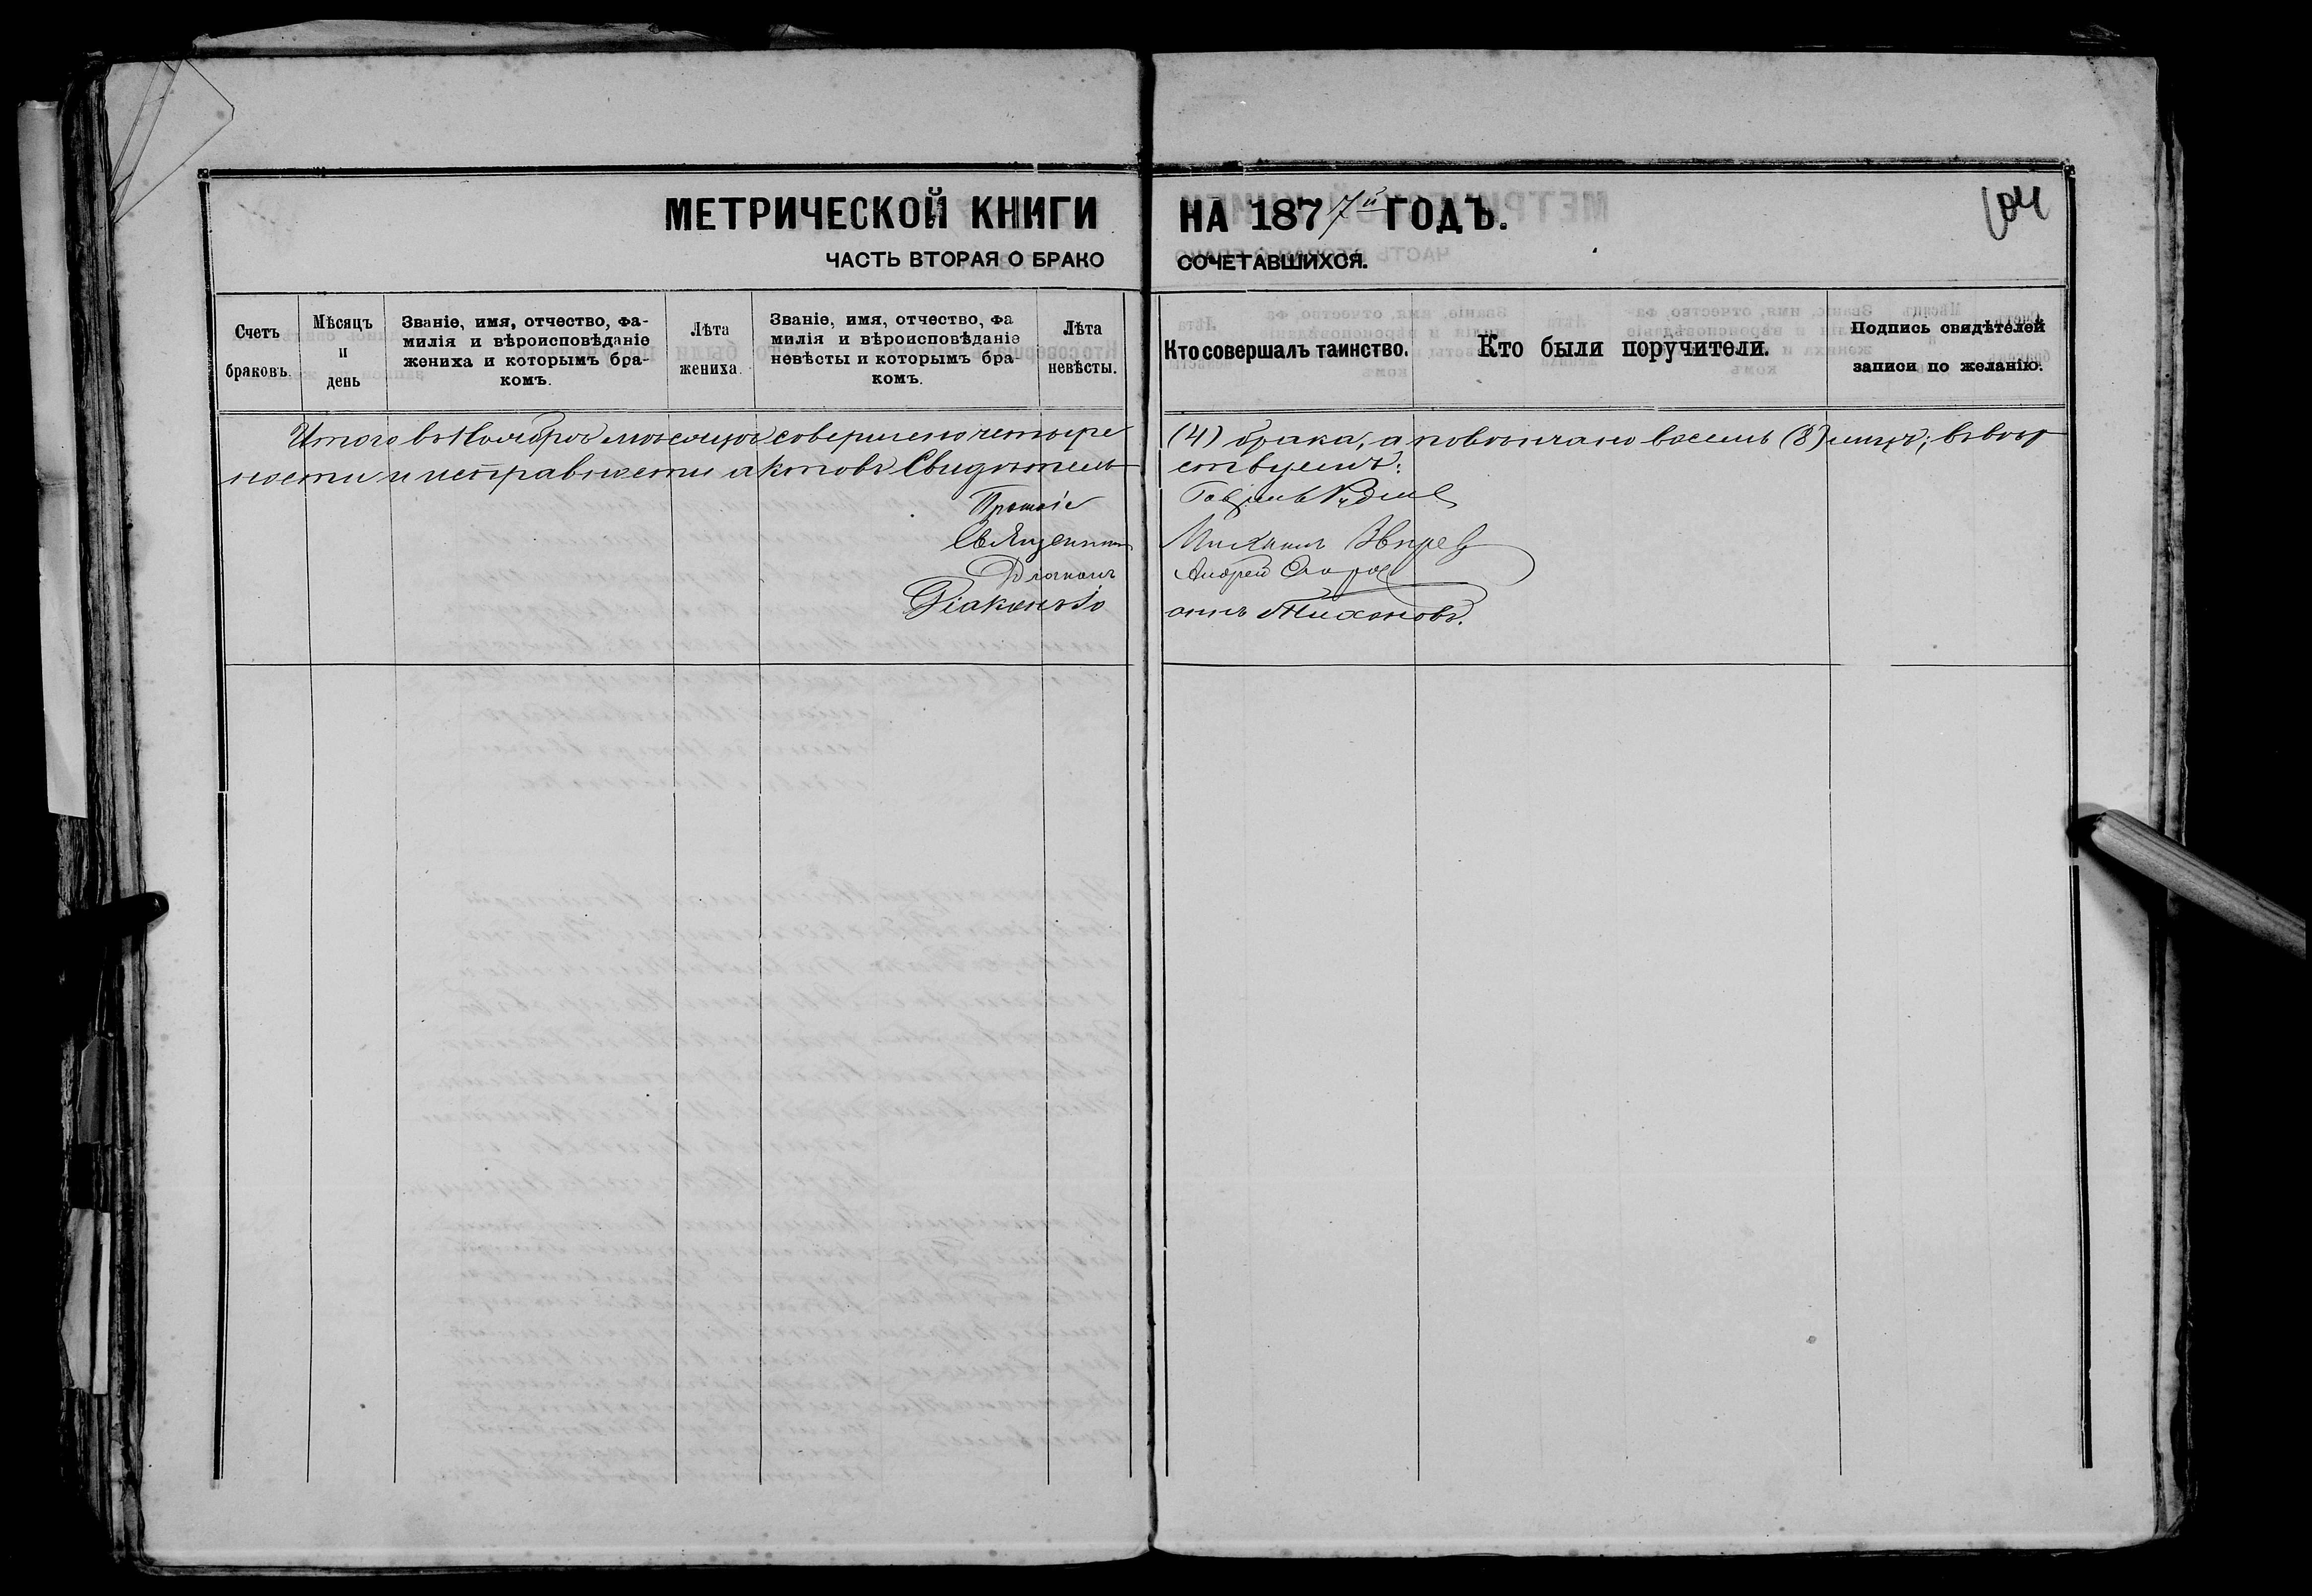 МЕТРИЧЕСКОЙ КНИГИ НА 1877й ГОДЪ.
104
ЧАСТЬ ВТОРАЯ О БРАКОСОЧЕТАВШИХСЯ.
Счетъ браковъ.
Мѣсяцъ и день
Званіе, имя, отчество, фа-
милія и вѣроисповѣданіе
жениха и которымъ бра-
комъ.
Лѣта жениха.
Званіе, имя, отчество, фа
милія и вѣроисповѣданіе
невѣсты и которымъ бра-
комъ.
Лѣта невѣсты.
Кто совершалъ таинство.
Кто были поручители.
Подпись свидѣтелей
записи по желанію.
Итого въ Ноябрѣ мѣсяцѣ совершено четыре (4) брака, а повѣнчано восемь (8) лицъ; въ вѣр
ности и исправности актовъ Свидѣтельствуемъ:
Протоіе
Священникъ Михаилъ
Діаконъ Андрей
Діаконъ Іоаннъ Тихоновъ.